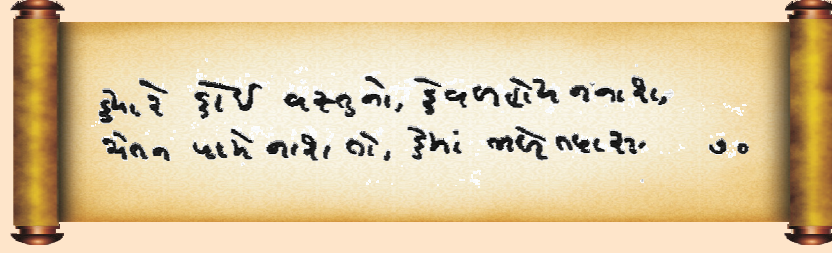 ક્યારે કોઈ વસ્તુનો, કેવળ હોય ન નાશ,
ચેતન પામે નાશ તો, કેમાં ભળે તપાસ. ૭૦